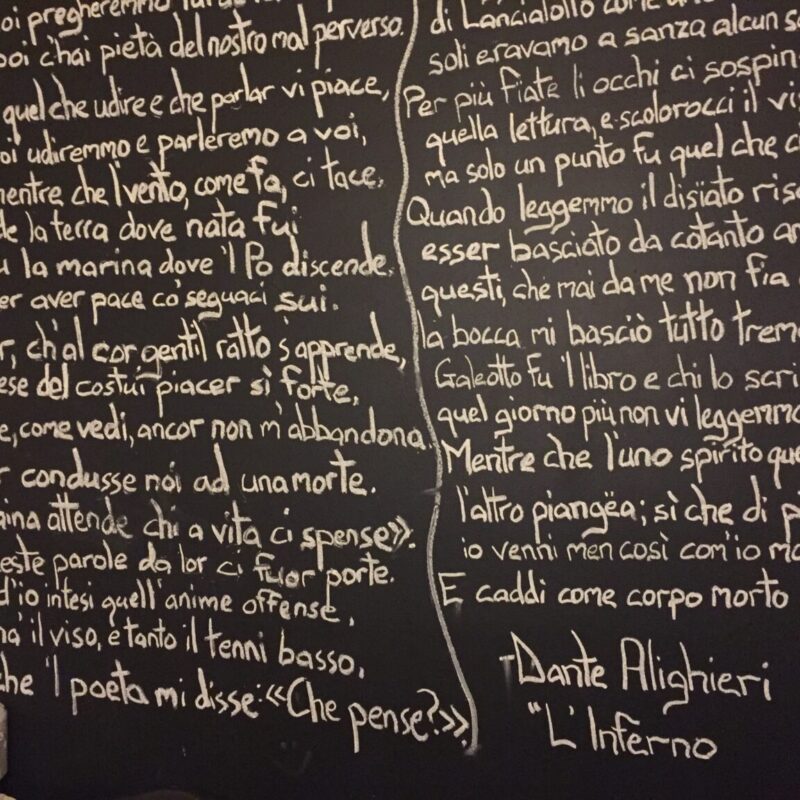 oi pregheremmo
poi c'hai pietà del nostro mal perverso.
quel che udire e che parlar vi piace,
oi udiremmo e parleremo a voi,
mentre che l'vento, come fa, ci tace.
de la terra dove nata fui
la marina dove 'l Po discende.
er aver pace co' seguaci sui.
r, ch'al cor gentil ratto s'apprende,
ese del costui piacer sì forte,
e, come vedi, ancor non m'abbandona.
r condusse noi ad una morte.
aina attende chi a vita ci spense».
este parole da lor ci fuor porte.
d'io intesi quell'anime offense,
na' il viso, e tanto il tenni basso,
che 'l poeta mi disse: «Che pense?»
di Lancialotto come
soli eravamo a sanza alcun s
Per più fiate li occhi ci sospin
quella lettura, e scolorocci il vi
ma solo un punto fu quel che c
Quando leggemmo il disïato ris
esser basciato da cotanto am
questi, che mai da me non fia
la bocca mi basciò tutto trem
Galeotto fu 'l libro e chi lo scri
quel giorno più non vi leggemmo
Mentre che l'uno spirito que
l'altro piangëa; sì che di p
io venni men così com'io mo
E caddi come corpo morto
-Dante Alighieri
"L'Inferno